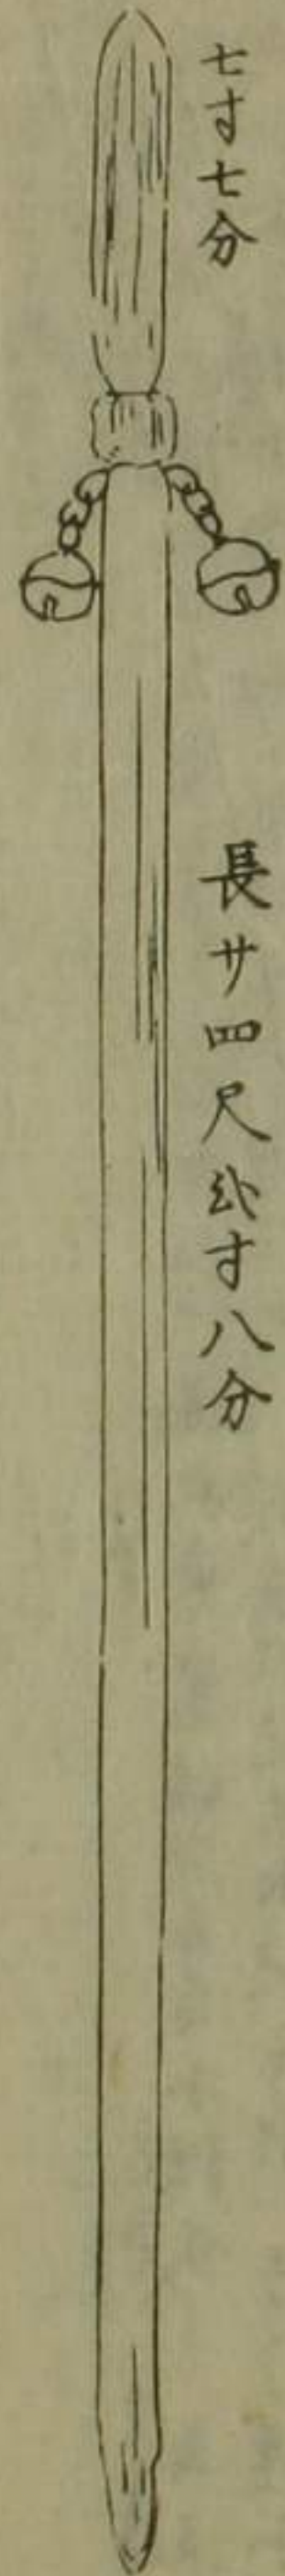 七寸七分
長廿四尺弐寸八分